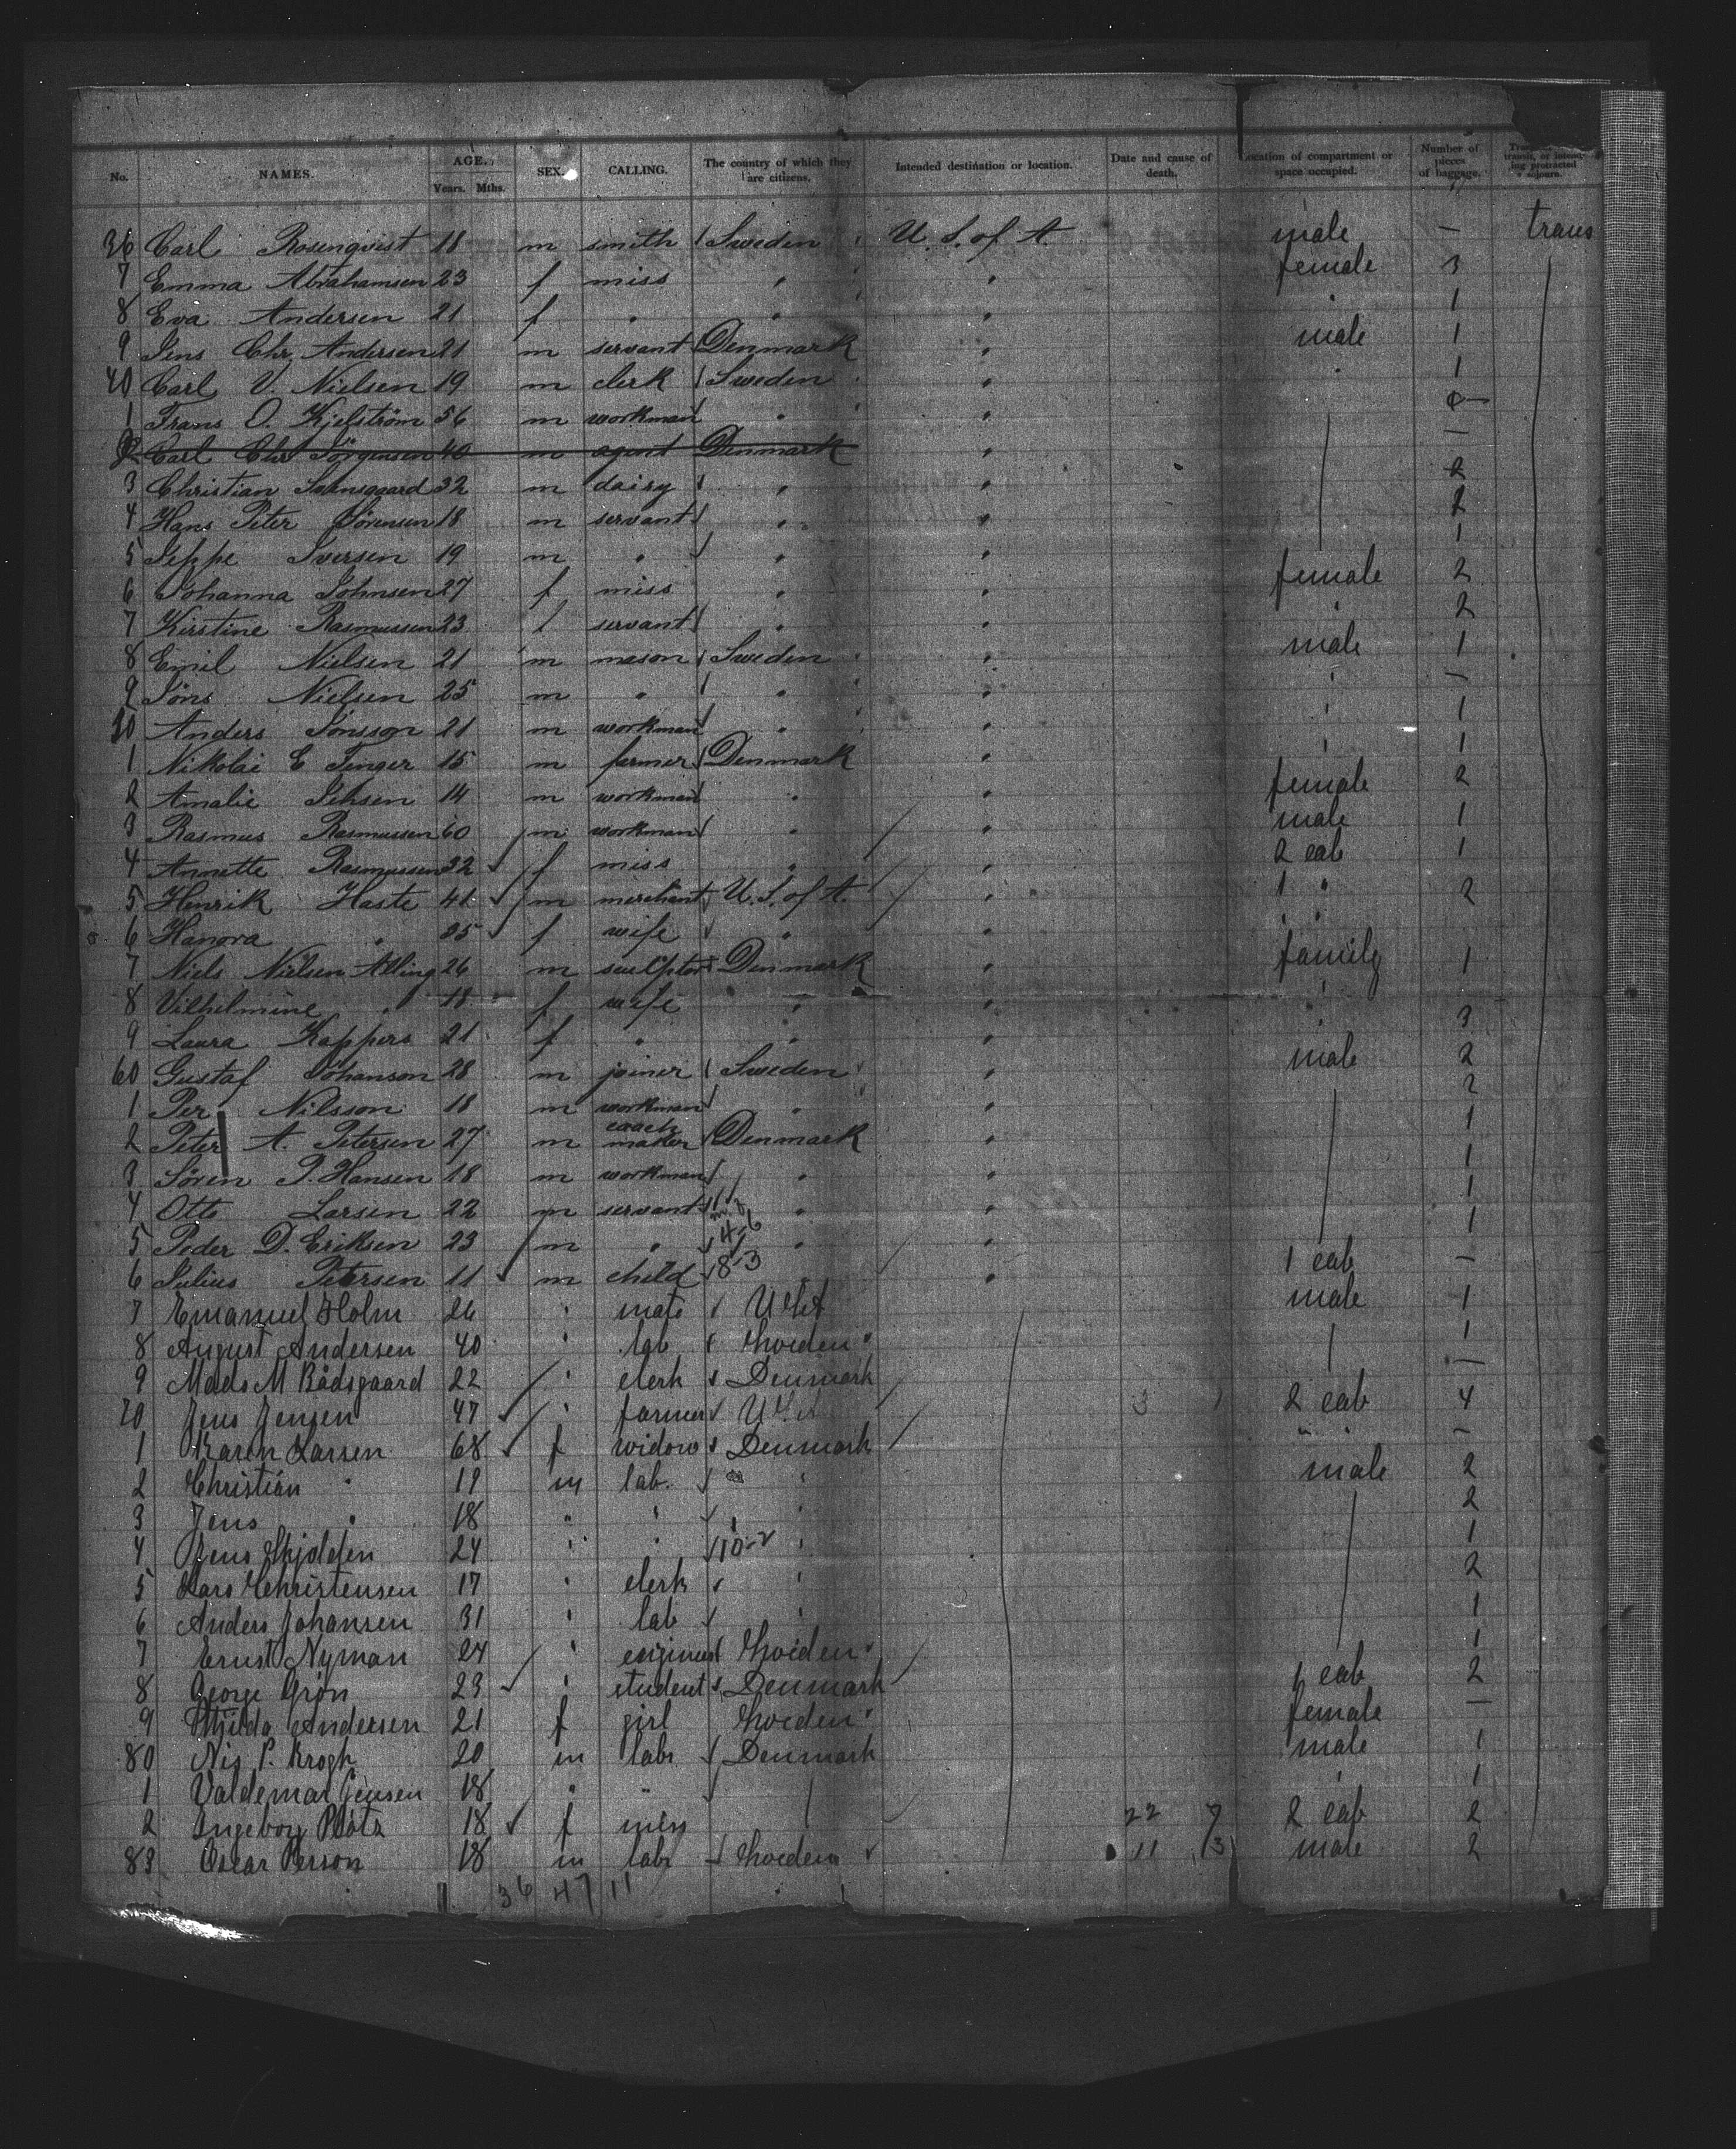 No. NAMES. AGE. Years. Mths. SEX. CALLING. The country of which they are citizens. Intended destination or location. Date and cause of death. Location of compartment or space occupied. Number of pieces of baggage.
36 Carl Rosenqvist 18 m smith Sweden U. S. of A. male — trans
7 Emma Abrahamsen 23 f miss " " female 3
8 Eva Andersen 21 f " " " " 1
9 Jens Chr. Andersen 21 m servant Denmark " male 1
40 Carl V. Nielsen 19 m clerk Sweden " " 1
1 Frans O. Kjelström 56 m workman " " —
2 Carl Chr. Jörgensen 40 m agent Denmark " —
3 Christian 32 m dairy " " 2
4 Hans Peter Sörensen 18 m servant " " 2
5 Jeppe Iversen 19 m " " " 1
6 Johanna Johnsen 27 f miss " " female 2
7 Kirstine Rasmussen 23 f servant " " " 2
8 Emil Nielsen 21 m mason Sweden " male 1
9 Jöns Nielsen 25 m " " " " —
50 Anders Jönsson 21 m workman " " " 1
1 Nikolai E Fenger 15 m farmer Denmark " " 1
2 Amalie 14 m workman " " female 2
3 Rasmus Rasmussen 60 m workman " " male 1
4 Annette Rasmussen 32 f miss " " 2 cab 1
5 Henrik Haste 41 m merchant U. S. of A. " 1 " 2
6 Hanora " 35 f wife " " "
7 Niels Nielsen Alling 26 m sculptor Denmark " family 1
8 Vilhelmine " 18 f wife " " "
9 Laura Kappers 21 f " " " " 3
60 Gustaf Johanson 28 m joiner Sweden " male 2
1 Per Nilsson 18 m workman " " 2
2 Peter A. Petersen 27 m coach maker Denmark " 1
3 Sören P. Hansen 18 m workman " " 1
4 Otto Larsen 22 m servant " " 1
5 Peder D. Eriksen 23 m " 4-6 " " 1
6 Julius Petersen 11 m child 8-3 " 1 cab —
7 Emanuel Holm 26 " mate male 1
8 August Andersen 40 " lab Sweden 1
9 Mads M Bådsgaard 22 " clerk Denmark —
70 Jens Jensen 47 " farmer 3 2 cab 4
1 Karen Larsen 68 f widow Denmark " " —
2 Christian " 19 m lab. " male 2
3 Jens " 18 " " " 2
4 Jens 24 " " 10-2 " 1
5 Lars Christensen 17 " clerk " 2
6 Anders Johansen 31 " lab " 1
7 Ernst Nyman 24 " engineer Sweden 1
8 George Grön 23 " student Denmark 1 cab 2
9 Andersen 21 f girl Sweden female —
80 Nis P. Krogh 20 m labr Denmark male 1
1 Valdemar Jensen 18 " " " 1
2 Ingeborg 18 f miss 22 7 2 cab 2
83 Oscar Person 18 m labr Sweden 11 3 male 2
36 47 11